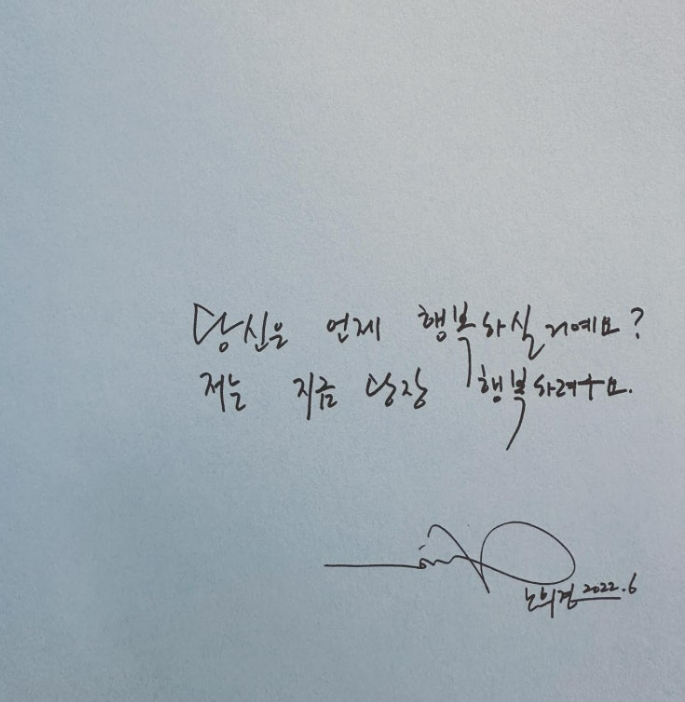 당신은 언제 행복하실 거예요?
저는 지금 당장 행복하려구요.
노의경 2022.6